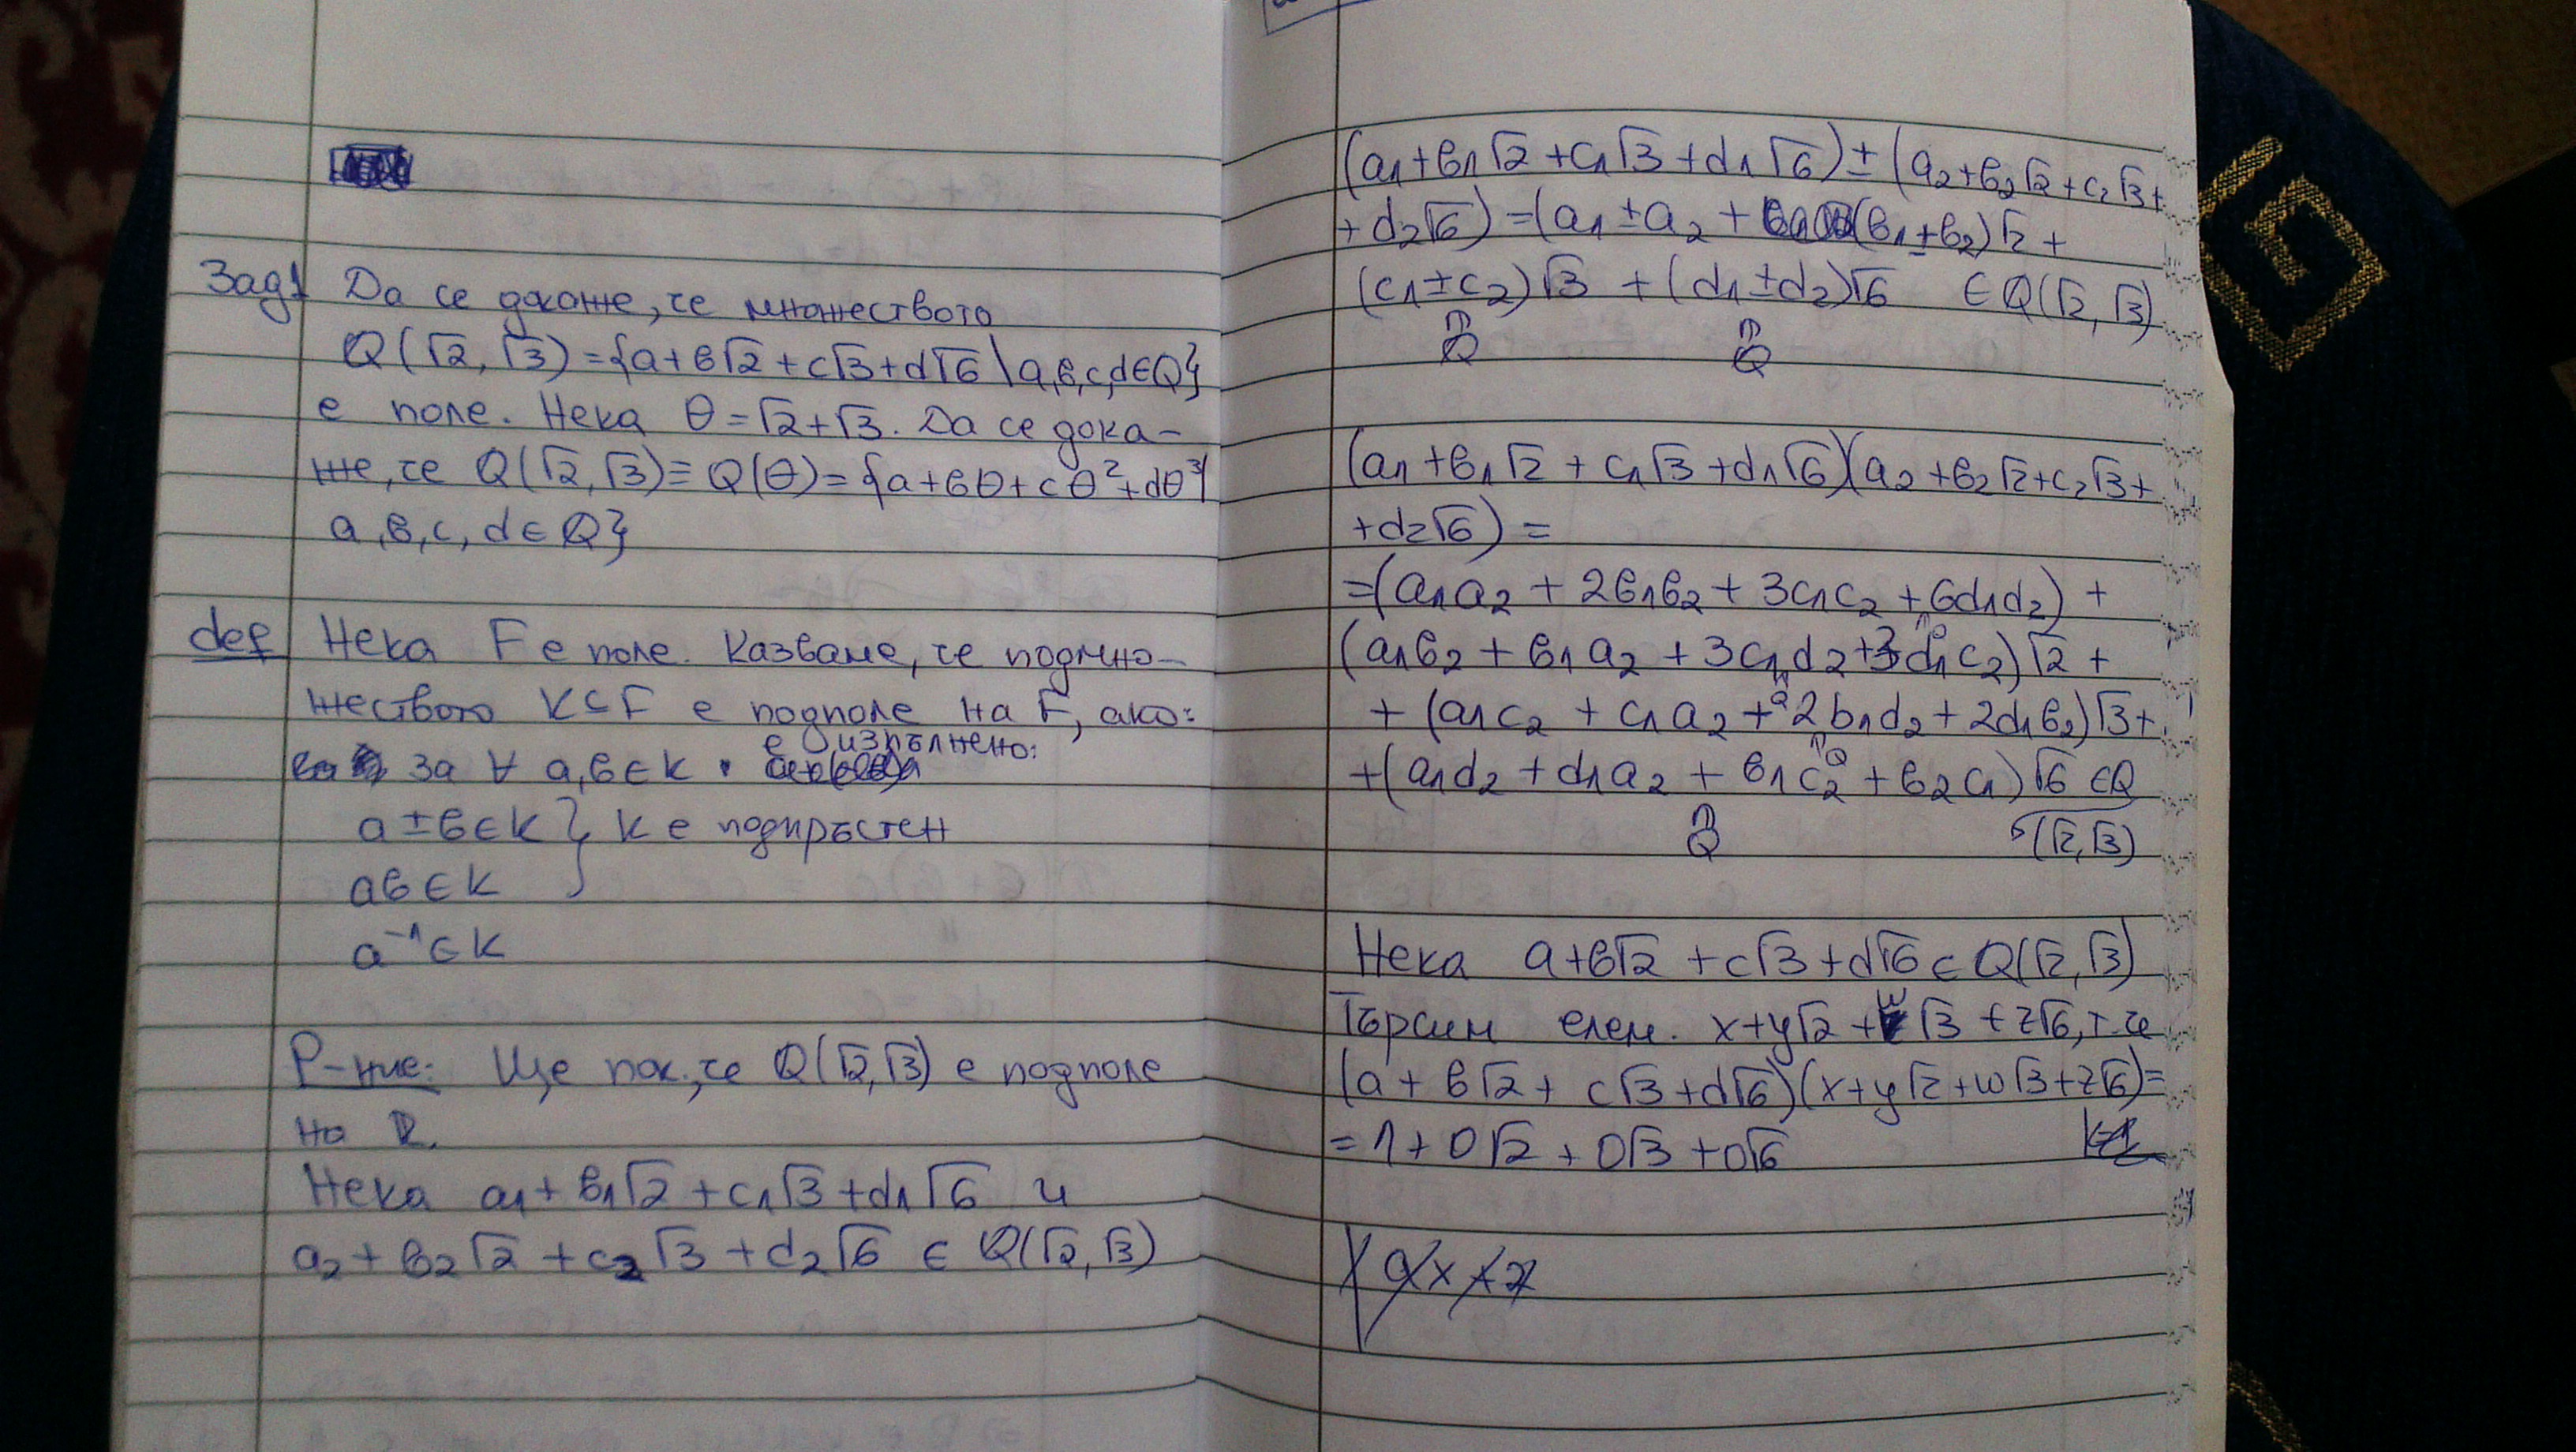 Зад1 Да се докаже, че множеството
Q(√2, √3) = {a+в√2+c√3+d√6 \ a,в,c,d∈Q}
е поле. Нека θ = √2+√3. Да се дока-
же, че Q(√2,√3) ≡ Q(θ) = {a+вθ+cθ²+dθ³|
a,в,c,d∈Q}
def Нека F е поле. Казваме, че подмно-
жеството K⊆F е подполе на F, ако:
е изпълнено:
за ∀ a,в∈K
a±в∈K } K е подпръстен
aв∈K
a⁻¹∈K
Р-ние: Ще пок., че Q(√2,√3) е подполе
на R.
Нека a₁+в₁√2+c₁√3+d₁√6 и
a₂+в₂√2+c₂√3+d₂√6 ∈ Q(√2,√3)
(a₁+в₁√2+c₁√3+d₁√6)±(a₂+в₂√2+c₂√3+
+d₂√6) =(a₁±a₂ + (в₁±в₂)√2 +
(c₁±c₂)√3 +(d₁±d₂)√6 ∈Q(√2,√3)
Q Q
(a₁+в₁√2+c₁√3+d₁√6)(a₂+в₂√2+c₂√3+
+d₂√6) =
=(a₁a₂ + 2в₁в₂ + 3c₁c₂ + 6d₁d₂) +
(a₁в₂ + в₁a₂ + 3c₁d₂ + 3d₁c₂)√2 +
+ (a₁c₂ + c₁a₂ + 2b₁d₂ + 2d₁в₂)√3 +
+(a₁d₂ + d₁a₂ + в₁c₂ + в₂c₁)√6 ∈Q
Q (√2,√3)
Нека a+в√2+c√3+d√6 ∈ Q(√2,√3)
Търсим елем. x+y√2+w√3+z√6, т. че
(a+в√2+c√3+d√6)(x+y√2+w√3+z√6)=
= 1+0√2+0√3+0√6